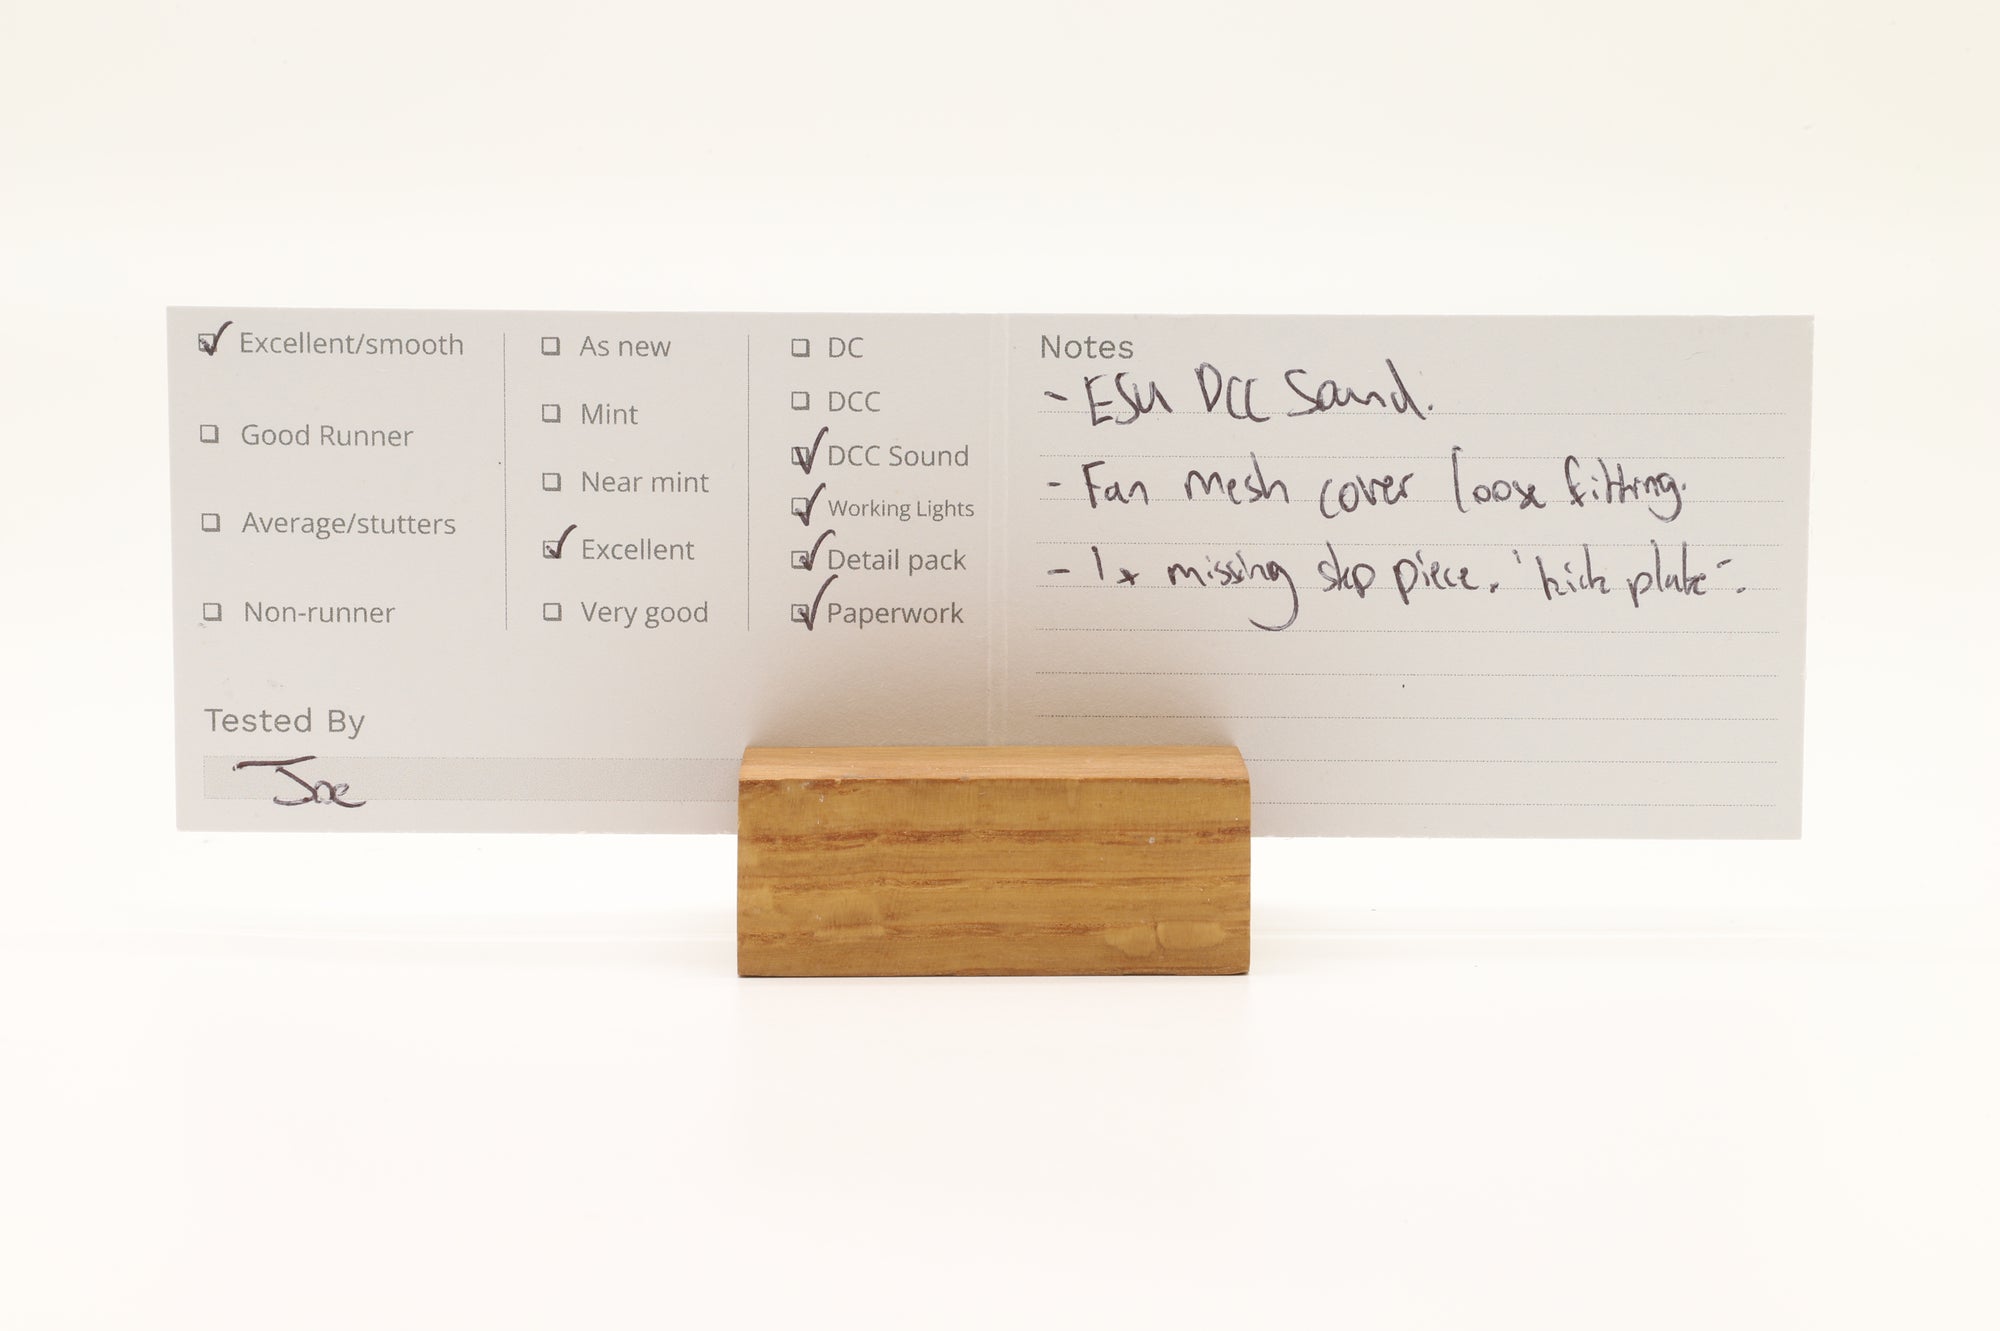 Excellent/smooth
Good Runner
Average/stutters
Non-runner
As new
Mint
Near mint
Excellent
Very good
DC
DCC
DCC Sound
Working Lights
Detail pack
Paperwork
Tested By
Joe
Notes
- ESU DCC Sound.
- Fan mesh cover loose fitting.
- 1x missing step piece. 'kick plate'.